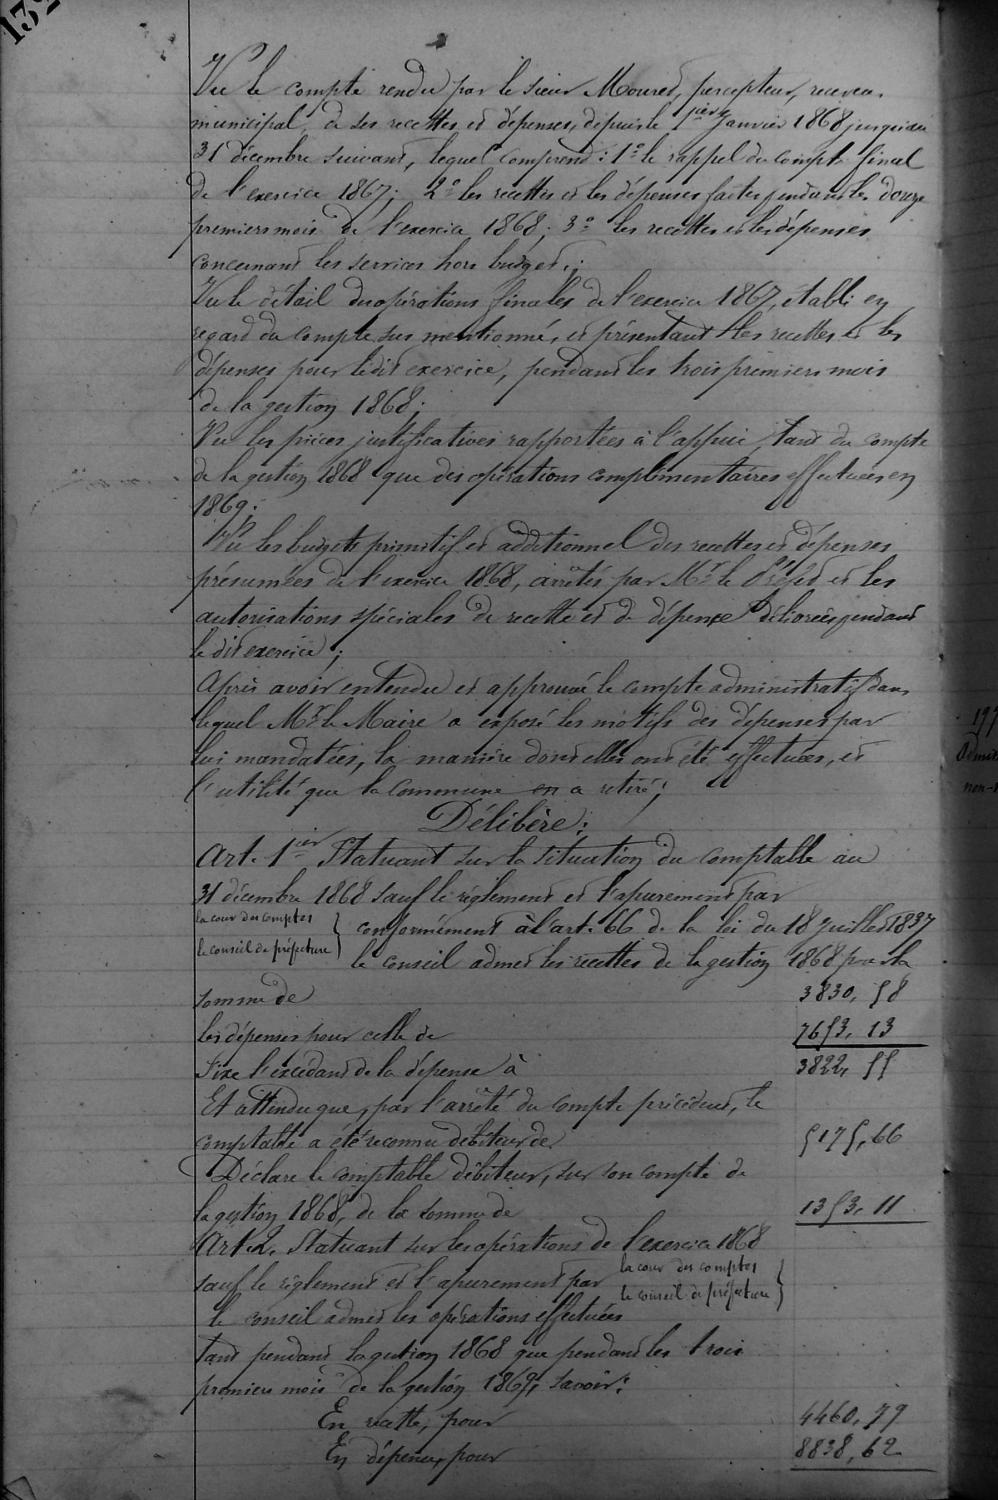 132
Vu le compte rendu par le sieur Mouret, percepteur, receveur
municipal, de ses recettes et dépenses, depuis le 1ier Janvier 1868 jusqu'au
31 décembre suivant, lequel comprend : 1° le rappel du compte final
de l'exercice 1867; 2° les recettes et les dépenses faites pendant les douze
premiers mois de l'exercice 1868; 3° les recettes et les dépenses
concernant les services hors budget;
Vu le détail des opérations finales de l'exercice 1867, établi en
regard du compte sus mentionné, et présentant les recettes et les
dépenses pour ledit exercice, pendant les trois premiers mois
de la gestion 1868;
Vu les pièces justificatives rapportées à l'appui, tant du compte
de la gestion 1868 que des opérations complémentaires effectuées en
1869;
Vu les budgets primitif et additionnel des recettes et dépenses
présumées de l'exercice 1868, arrêtés par Mr le Préfet et les
autorisations spéciales de recette et de dépense délivrées pendant
le dit exercice;
Après avoir entendu et approuvé le compte administratif dans
lequel Mr le Maire a exposé les motifs des dépenses par
lui mandatées, la manière dont elles ont été effectuées, et
l'utilité que la Commune en a retiré;
Délibère:
Art. 1ier Statuant sur la situation du comptable au
31 décembre 1868 sauf le règlement et l'apurement par
la cour des comptes
le conseil de préfecture } conformément à l'art. 66 de la loi du 18 juillet 1837
le conseil admet les recettes de la gestion 1868 pour la
somme de 3830,58
les dépenses pour celle de 7653,13
Fixe l'excédant de la dépense à 3822,55
Et attendu que, par l'arrêté du compte précédent, le
comptable a été reconnu débiteur de 5175,66
Déclare le comptable débiteur, sur son compte de
la gestion 1868, de la somme de 1353,11
Art. 2. Statuant sur les opérations de l'exercice 1868
sauf le règlement et l'apurement par la cour des comptes
le conseil de préfecture }
le conseil admet les opérations effectuées
tant pendant la gestion 1868 que pendant les trois
premiers mois de la gestion 1869, savoir:
En recette, pour 4460,79
En dépense, pour 8838,62